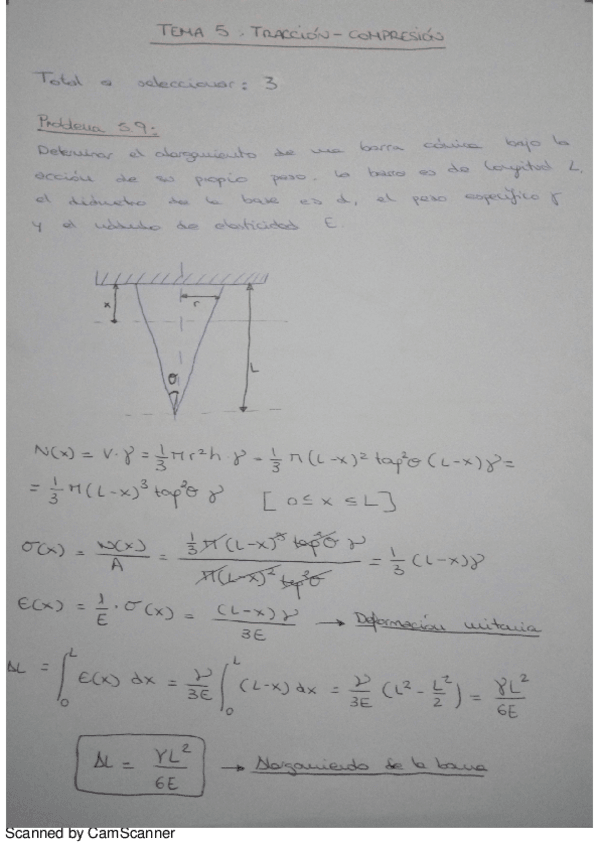 TEMA 5. TRACCIÓN-COMPRESIÓN
Total a seleccionar: 3
Problema 5.9:
Determinar el alargamiento de una barra cónica bajo la
acción de su propio peso. La barra es de longitud L,
el diámetro de la base es d, el peso específico γ
y el módulo de elasticidad E.
x
r
θ
L
N(x) = V·γ = 1/3 π r² h·γ = 1/3 π (L-x)² tag²θ (L-x)γ =
= 1/3 π (L-x)³ tag²θ γ [0 ≤ x ≤ L]
σ(x) = N(x)/A = 1/3 π (L-x)³ tag²θ γ / π(L-x)² tg²θ = 1/3 (L-x)γ
ϵ(x) = 1/E · σ(x) = (L-x)γ / 3E → Deformación unitaria
ΔL = ∫₀ᴸ ϵ(x) dx = γ/3E ∫₀ᴸ (L-x) dx = γ/3E (L² - L²/2) = γL²/6E
ΔL = γL²/6E → Alargamiento de la barra
Scanned by CamScanner